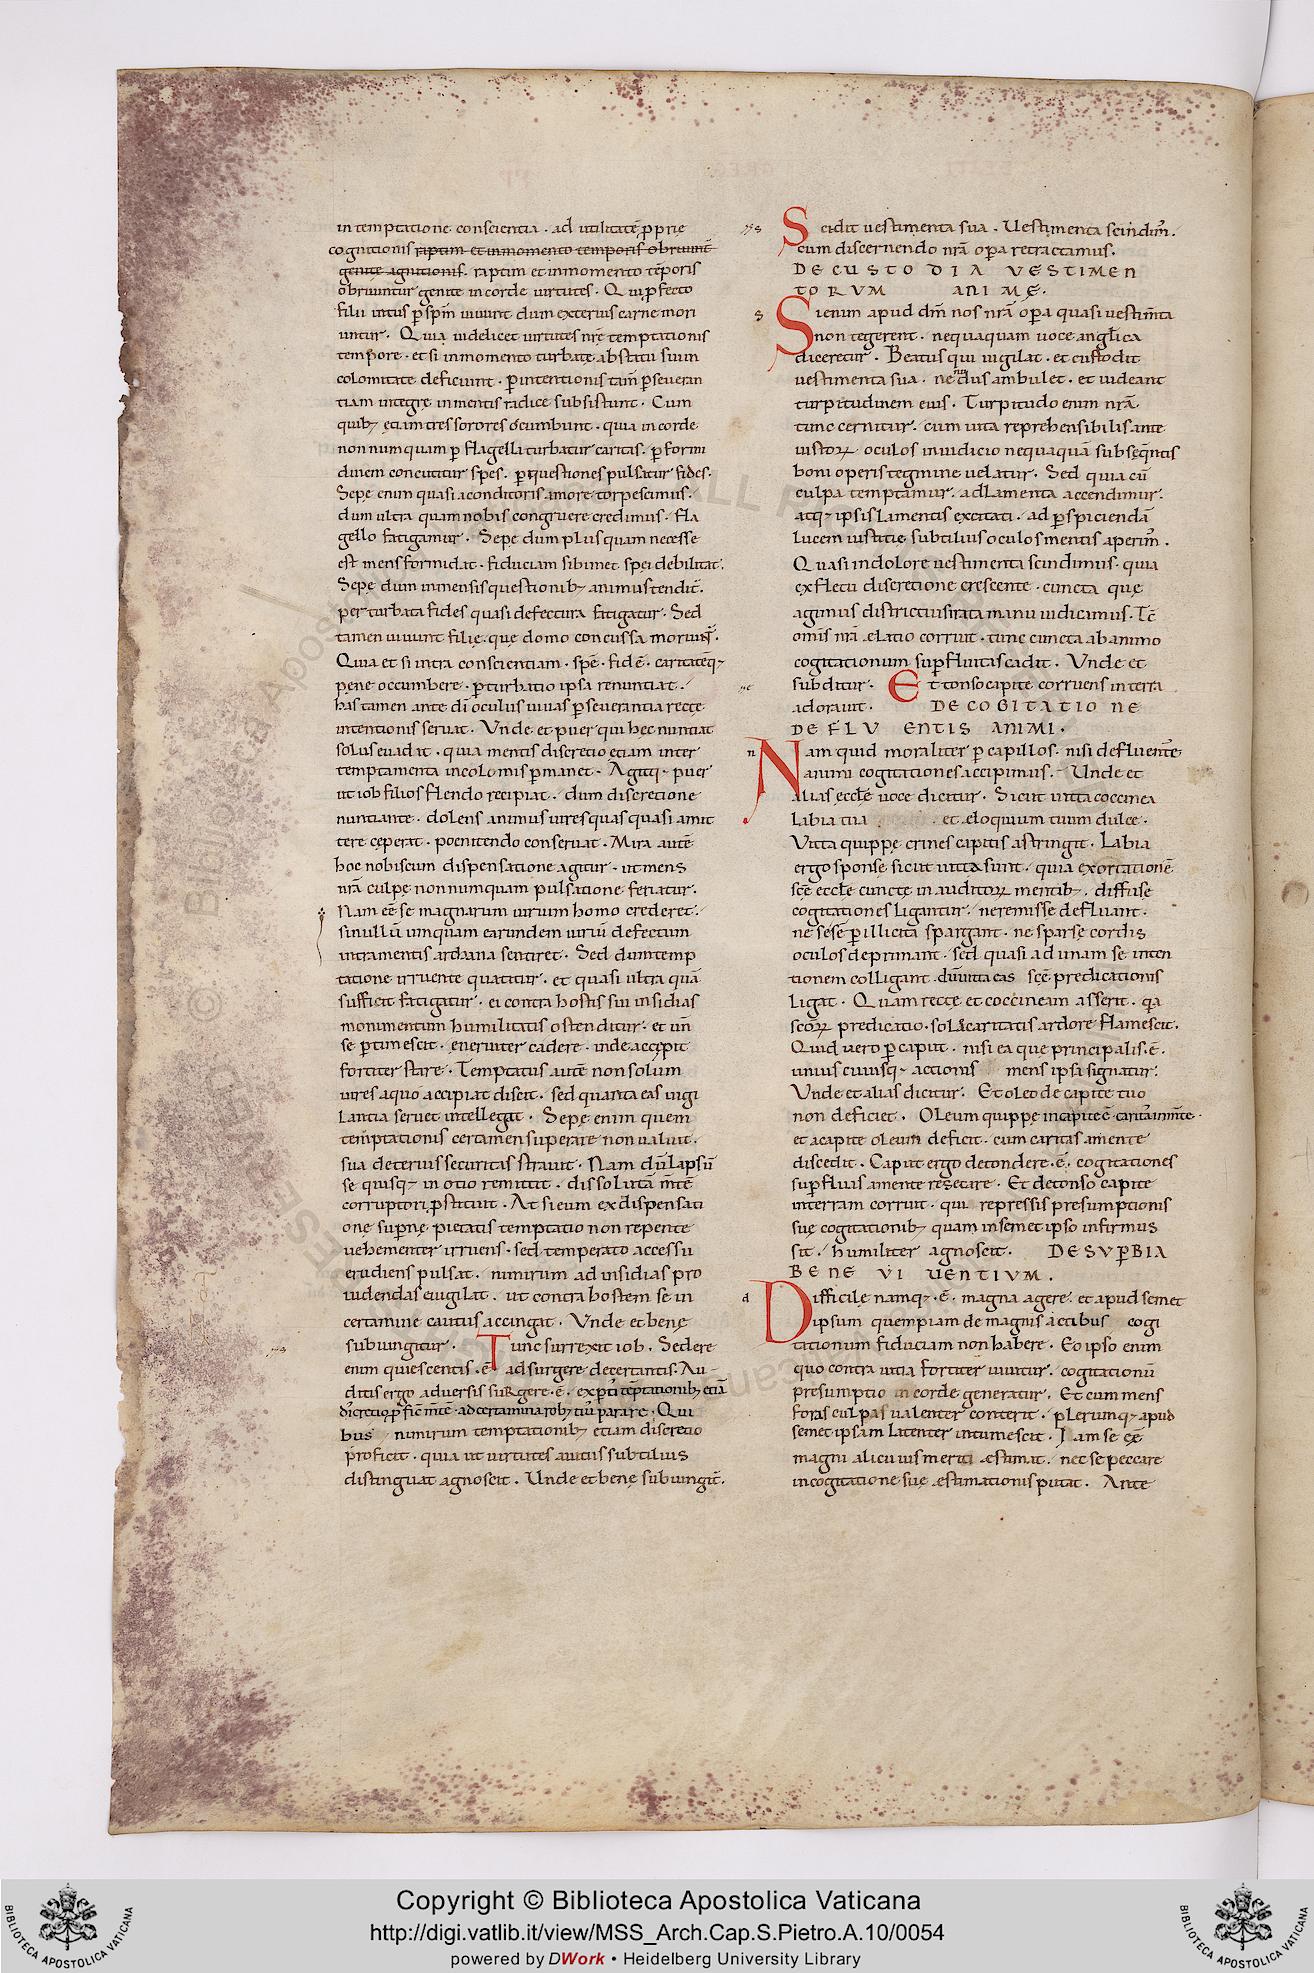 in temptatione conscientia . ad utilitatē ꝓprię
cognitionis raptim et inmomento temporis obruunt̄
gentte agnitionis . raptim et inmomento tēporis
obruuntur genite in corde uirtutes . Qui ꝑfecto
filii intus ꝑ spm̄ uiuunt dum exterius carne mori
untur . Quia uidelicet uirtutes nrę temptationis
tempore . et si inmomento turbatę abstatu suun
colomitate deficiunt . ꝑ intentionis tam̄ ꝑseueran
tiam integrę in mentis radice subsistunt . Cum
quibꝫ etiam tres sorores ocumbunt . quia in corde
non numquam ꝑ flagella turbatur caritas . ꝑ formi
dinem concutitur spes . ꝑ questiones pulsatur fides .
Sepę enim quasi a conditoris amore torpescimus .
dum ultra quam nobis congruere credimus . fla
gello fatigamur . Sepę dum plus quam necesse
est mens formidat . fiduciam sibimet spei debilitat .
Sepę dum inmensis questionibꝫ animus tendit̄ .
perturbata fides quasi defectura fatigatur . Sed
tamen uiuunt filię . quę domo concussa moriunt̄ .
Quia et si intra conscientiam . spē . fidē . caritatēqꝫ
pęne occumbere . ꝑturbatio ipsa renuntiat .
has tamen ante dī oculus uiuas ꝑseuerantia rectę
intentionis seruat . Unde et puer qui hęc nuntiat
solus euadit . quia mentis discretio etiam inter
temptamenta incolomis ꝑmanet . Agitqꝫ puer
ut iob filios flendo recipiat . dum discretione
nuntiante . dolens animus uires quas quasi amit
tere cęperat . poenitendo conseruat . Mira autē
hoc nobiscum dispensatione agitur . ut mens
nrā culpę non numquam pulsatione feriatur .
Nam eē se magnarum uirium homo crederet .
si nullū umquam earundem uirtū defectum
intra mentis archana sentiret . Sed dum temp
tatione irruente quatitur . et quasi ultra quā
sufficit fatigatur . ei contra hostis sui insidias
monumentum humilitatis ostenditur . et un̄
se ꝑtimescit . eneruiter cadere . inde accipit
fortiter stare . Temptatus autē non solum
uires a quo accipiat discit . sed quanta eas uigi
lantia seruet intellegat . Sepę enim quem
temptationis certamen superare non ualuit .
sua deterius securitas strauit . Nam dū lapsū
se quisqꝫ in otio remittit . dissolutā mtē
corruptori ꝓstituit . At si eum ex dispensati
one supnę pietatis temptatio non repente
uehementer irruens . sed temperato accessu
erudiens pulsat . nimirum ad insidias pro
uidendas euigilat . ut contra hostem se in
certamine cautus accingat . Unde et benę
subiungitur . Tunc surrexit iob . Sedere
enim quiescentis . ē adsurgere decertantis . Au
ditis ergo aduersis surgere . ē . exꝑtis tēptationibꝫ etiā
ad certamina robꝫ parare . Qui
bus nimirum temptationibꝫ etiam discretio
proficit . quia ut uirtutes auitiis subtilius
distinguat agnoscit . Unde et benę subiungit̄ .
Scidit uestimenta sua . Uestimenta scindim̄ .
cum discernendo nrā opa retractamus .
DE CUSTODIA VESTIMEN
TORVM ANIMĘ .
Si enim apud dm̄ nos nrā opa quasi uestim̄ta
non tegerent . nequaquam uoce anglica
diceretur . Beatus qui uigilat . et custodit
uestimenta sua . ne nudus ambulet . et uideant
turpitudinem eius . Turpitudo enim nrā
tunc cernitur . cum uita reprehensibilis ante
iustorꝝ oculos iniudicio nequaquā subseqntis
boni operis tegmine uelatur . Sed quia cū
culpa temptamur . ad lamenta accendimur .
atqꝫ ipsis lamentis excitati . ad ꝑspiciendā
lucem iustitię subtilius oculos mentis aperim̄ .
Quasi in dolore uestimenta scindimus . quia
ex fletu discretione crescente . cuncta quę
agimus districtius irata manu iudicamus . Tc̄
omis nrā elatio corruit . tunc cuncta ab animo
cogitationum supfluitas cadit . Unde et
subditur . Et tonso capite corruens in terra
adorauit . DE COGITATIONE
DEFLVENTIS ANIMI .
Nam quid moraliter ꝑ capillos . nisi defluentes
animi cogitationes accipimus . Unde et
alias ecclę uoce dicitur . Sicut uitta coccinea
labia tua . et eloquium tuum dulce .
Vitta quippę crines capitis astringit . Labia
ergo sponsę sicut uitta sunt . quia exortationē
scę ecclę cunctę in auditorꝝ mentibꝫ . diffusę
cogitationes ligantur . ne remisse defluant .
ne sese ꝑ illicita spargant . ne sparsę cordis
oculos deprimant . sed quasi ad unam se inten
tionem colligant . dū uitta eas scę predicationis
ligat . Quam rectę et coccineam asserit . qa
scōrꝝ predicatio . sola caritatis ardore flamescit .
Quid uero ꝑ caput . nisi ea que principalis . ē .
unius cuiusqꝫ actionis mens ipsi signatur .
Unde et alias dicitur . Et oleo de capite tuo
non deficiet . Oleum quippę in capite ē caritas in mente .
et a capite oleum deficit . cum caritas a mente
discedit . Caput ergo detondere . ē . cogitationes
supfluas a mente resecare . Et detonso capite
in terram corruit . qui repressis presumptionis
suę cogitationibꝫ quam in semet ipso infirmus
sit . humiliter agnoscit . DE SVPERBIA
BENE VIUENTIVM .
Difficile namqꝫ . ē . magna agere . et apud semet
ipsum quempiam de magnis actibus cogi
tationum fiduciam non habere . Eo ipso enim
quo contra uitia fortiter uiuitur . cogitationū
presumptio in corde generatur . Et cum mens
foras culpas ualenter conterit . plerumqꝫ apud
semet ipsam latenter intumescit . Iam se eē
magni alicuius meriti estimat . nec se peccare
in cogitatione suę estimationis putat . Ante
Copyright © Biblioteca Apostolica Vaticana
http://digi.vatlib.it/view/MSS_Arch.Cap.S.Pietro.A.10/0054
powered by DWork • Heidelberg University Library
BIBLIOTECA APOSTOLICA VATICANA
BIBLIOTECA APOSTOLICA VATICANA